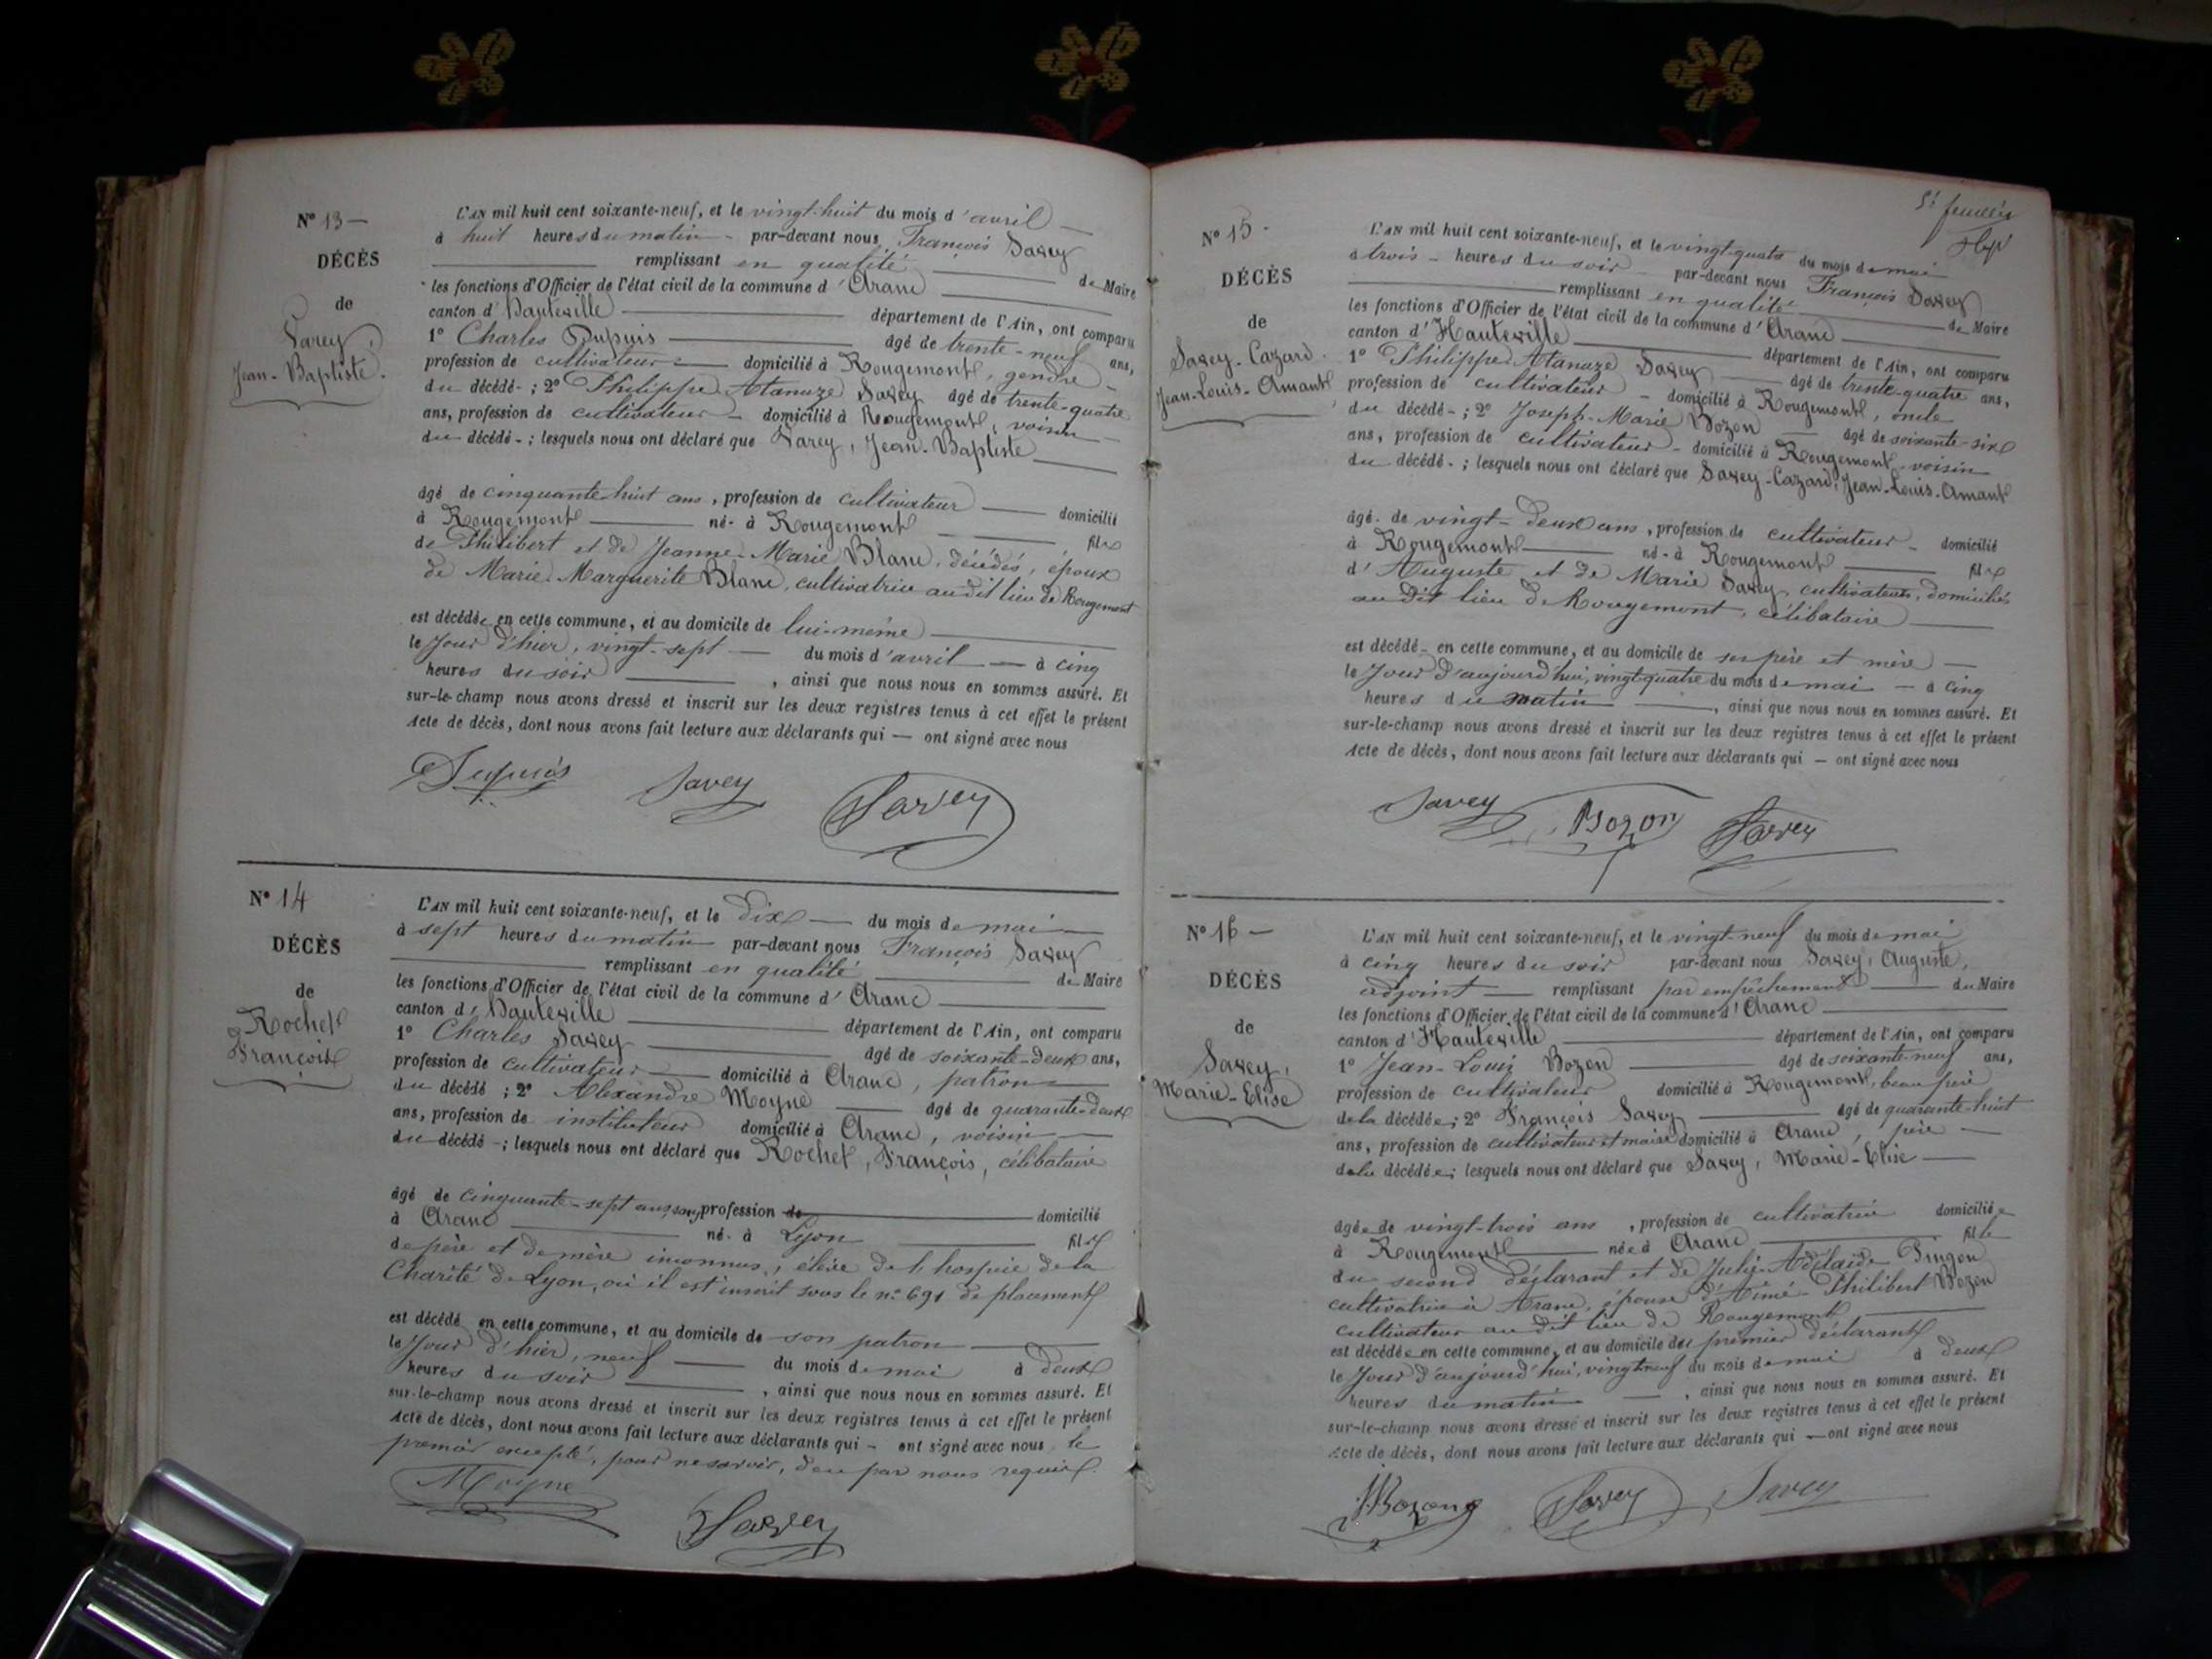 N° 13 —
DÉCÈS
de
Larey,
Jean-Baptiste.
L'AN mil huit cent soixante-neuf, et le vingt-huit du mois d'avril —
à huit heures du matin - par-devant nous François Savey
remplissant en qualité de Maire
les fonctions d'Officier de l'état civil de la commune d'Aranc
canton d'Hauteville département de l'Ain, ont comparu
1° Charles Dupuis âgé de trente-neuf ans,
profession de cultivateur - domicilié à Rougemont, gendre -
du décédé - ; 2° Philippe Atanaze Savey âgé de trente-quatre
ans, profession de cultivateur - domicilié à Rougemont, voisin
du décédé - ; lesquels nous ont déclaré que Larey, Jean-Baptiste
âgé de cinquante-huit ans, profession de cultivateur — domicilié
à Rougemont né - à Rougemont fils
de Philibert et de Jeanne-Marie Blanc, décédés, époux
de Marie Marguerite Blanc, cultivatrice audit lieu de Rougemont
est décédé en cette commune, et au domicile de lui-même
le Jour d'hier, vingt-sept — du mois d'avril — à cinq
heures du soir, ainsi que nous nous en sommes assuré. Et
sur-le-champ nous avons dressé et inscrit sur les deux registres tenus à cet effet le présent
Acte de décès, dont nous avons fait lecture aux déclarants qui — ont signé avec nous
Dupuis Savey Savey
N° 14
DÉCÈS
de
Rochet
François
L'AN mil huit cent soixante-neuf, et le dix — du mois de mai
à sept heures du matin par-devant nous François Savey
remplissant en qualité de Maire
les fonctions d'Officier de l'état civil de la commune d'Aranc
canton d'Hauteville département de l'Ain, ont comparu
1° Charles Savey âgé de soixante-deux ans,
profession de cultivateur — domicilié à Aranc, patron
du décédé ; 2° Alexandre Moyne âgé de quarante-deux
ans, profession de instituteur domicilié à Aranc, voisin
du décédé - ; lesquels nous ont déclaré que Rochet, François, célibataire
âgé de cinquante-sept ans, sans profession de domicilié
à Aranc né - à Lyon fils
de père et de mère inconnus, élève de l'hospice de la
Charité de Lyon, où il est inscrit sous le n° 691 de placement
est décédé en cette commune, et au domicile de son patron
le Jour d'hier, neuf — du mois de mai à deux
heures du soir, ainsi que nous nous en sommes assuré. Et
sur-le-champ nous avons dressé et inscrit sur les deux registres tenus à cet effet le présent
Acte de décès, dont nous avons fait lecture aux déclarants qui - ont signé avec nous, le
premier excepté, pour ne savoir, de ce par nous requis.
Moyne Savey
51 feuillet
N° 15 -
DÉCÈS
de
Savey-Cazard.
Jean-Louis-Amant
L'AN mil huit cent soixante-neuf, et le vingt-quatre du mois de mai
à trois - heures du soir par-devant nous François Savey
remplissant en qualité de Maire
les fonctions d'Officier de l'état civil de la commune d'Aranc
canton d'Hauteville département de l'Ain, ont comparu
1° Philippe Atanaze Savey — âgé de trente-quatre ans,
profession de cultivateur - domicilié à Rougemont, oncle
du décédé - ; 2° Joseph-Marie Bozon — âgé de soixante-six
ans, profession de cultivateur - domicilié à Rougemont voisin
du décédé - ; lesquels nous ont déclaré que Savey-Cazard, Jean-Louis-Amant
âgé - de vingt-deux ans, profession de cultivateur - domicilié
à Rougemont né - à Rougemont fils
d'Auguste et de Marie Savey, cultivateurs, domiciliés
au dit lieu de Rougemont, célibataire
est décédé - en cette commune, et au domicile de ses père et mère —
le Jour d'aujourd'hui, vingt-quatre du mois de mai — à cinq
heures du matin, ainsi que nous nous en sommes assuré. Et
sur-le-champ nous avons dressé et inscrit sur les deux registres tenus à cet effet le présent
Acte de décès, dont nous avons fait lecture aux déclarants qui — ont signé avec nous
Savey Bozon Savey
N° 16 —
DÉCÈS
de
Savey,
Marie-Elise
L'AN mil huit cent soixante-neuf, et le vingt-neuf du mois de mai
à cinq heures du soir par-devant nous Savey, Auguste,
adjoint — remplissant par empêchement — du Maire
les fonctions d'Officier de l'état civil de la commune d'Aranc
canton d'Hauteville département de l'Ain, ont comparu
1° Jean-Louis Bozon âgé de soixante-neuf ans,
profession de cultivateur domicilié à Rougemont, beau père
de la décédée ; 2° François Savey âgé de quarante-huit
ans, profession de cultivateur et maire domicilié à Aranc, père —
de la décédée ; lesquels nous ont déclaré que Savey, Marie-Elise —
âgée de vingt-trois ans, profession de cultivatrice domiciliée
à Rougemont née à Aranc fille
du second déclarant et de Julie-Adélaïde Pingon
cultivatrice à Aranc, épouse d'Aimé-Philibert Bozon
cultivateur au dit lieu de Rougemont
est décédée en cette commune, et au domicile du premier déclarant
le Jour d'aujourd'hui, vingt neuf du mois de mai à deux
heures du matin —, ainsi que nous nous en sommes assuré. Et
sur-le-champ nous avons dressé et inscrit sur les deux registres tenus à cet effet le présent
Acte de décès, dont nous avons fait lecture aux déclarants qui — ont signé avec nous
Bozon Savey Savey